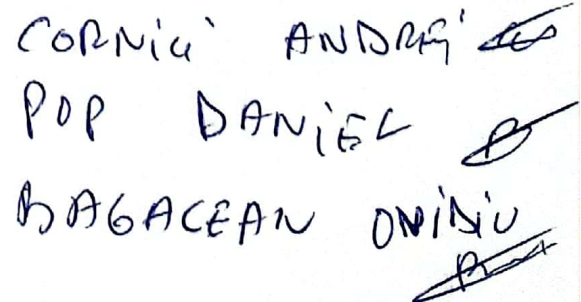 CORNICI ANDREI
POP DANIEL
BAGACEAN OVIDIU